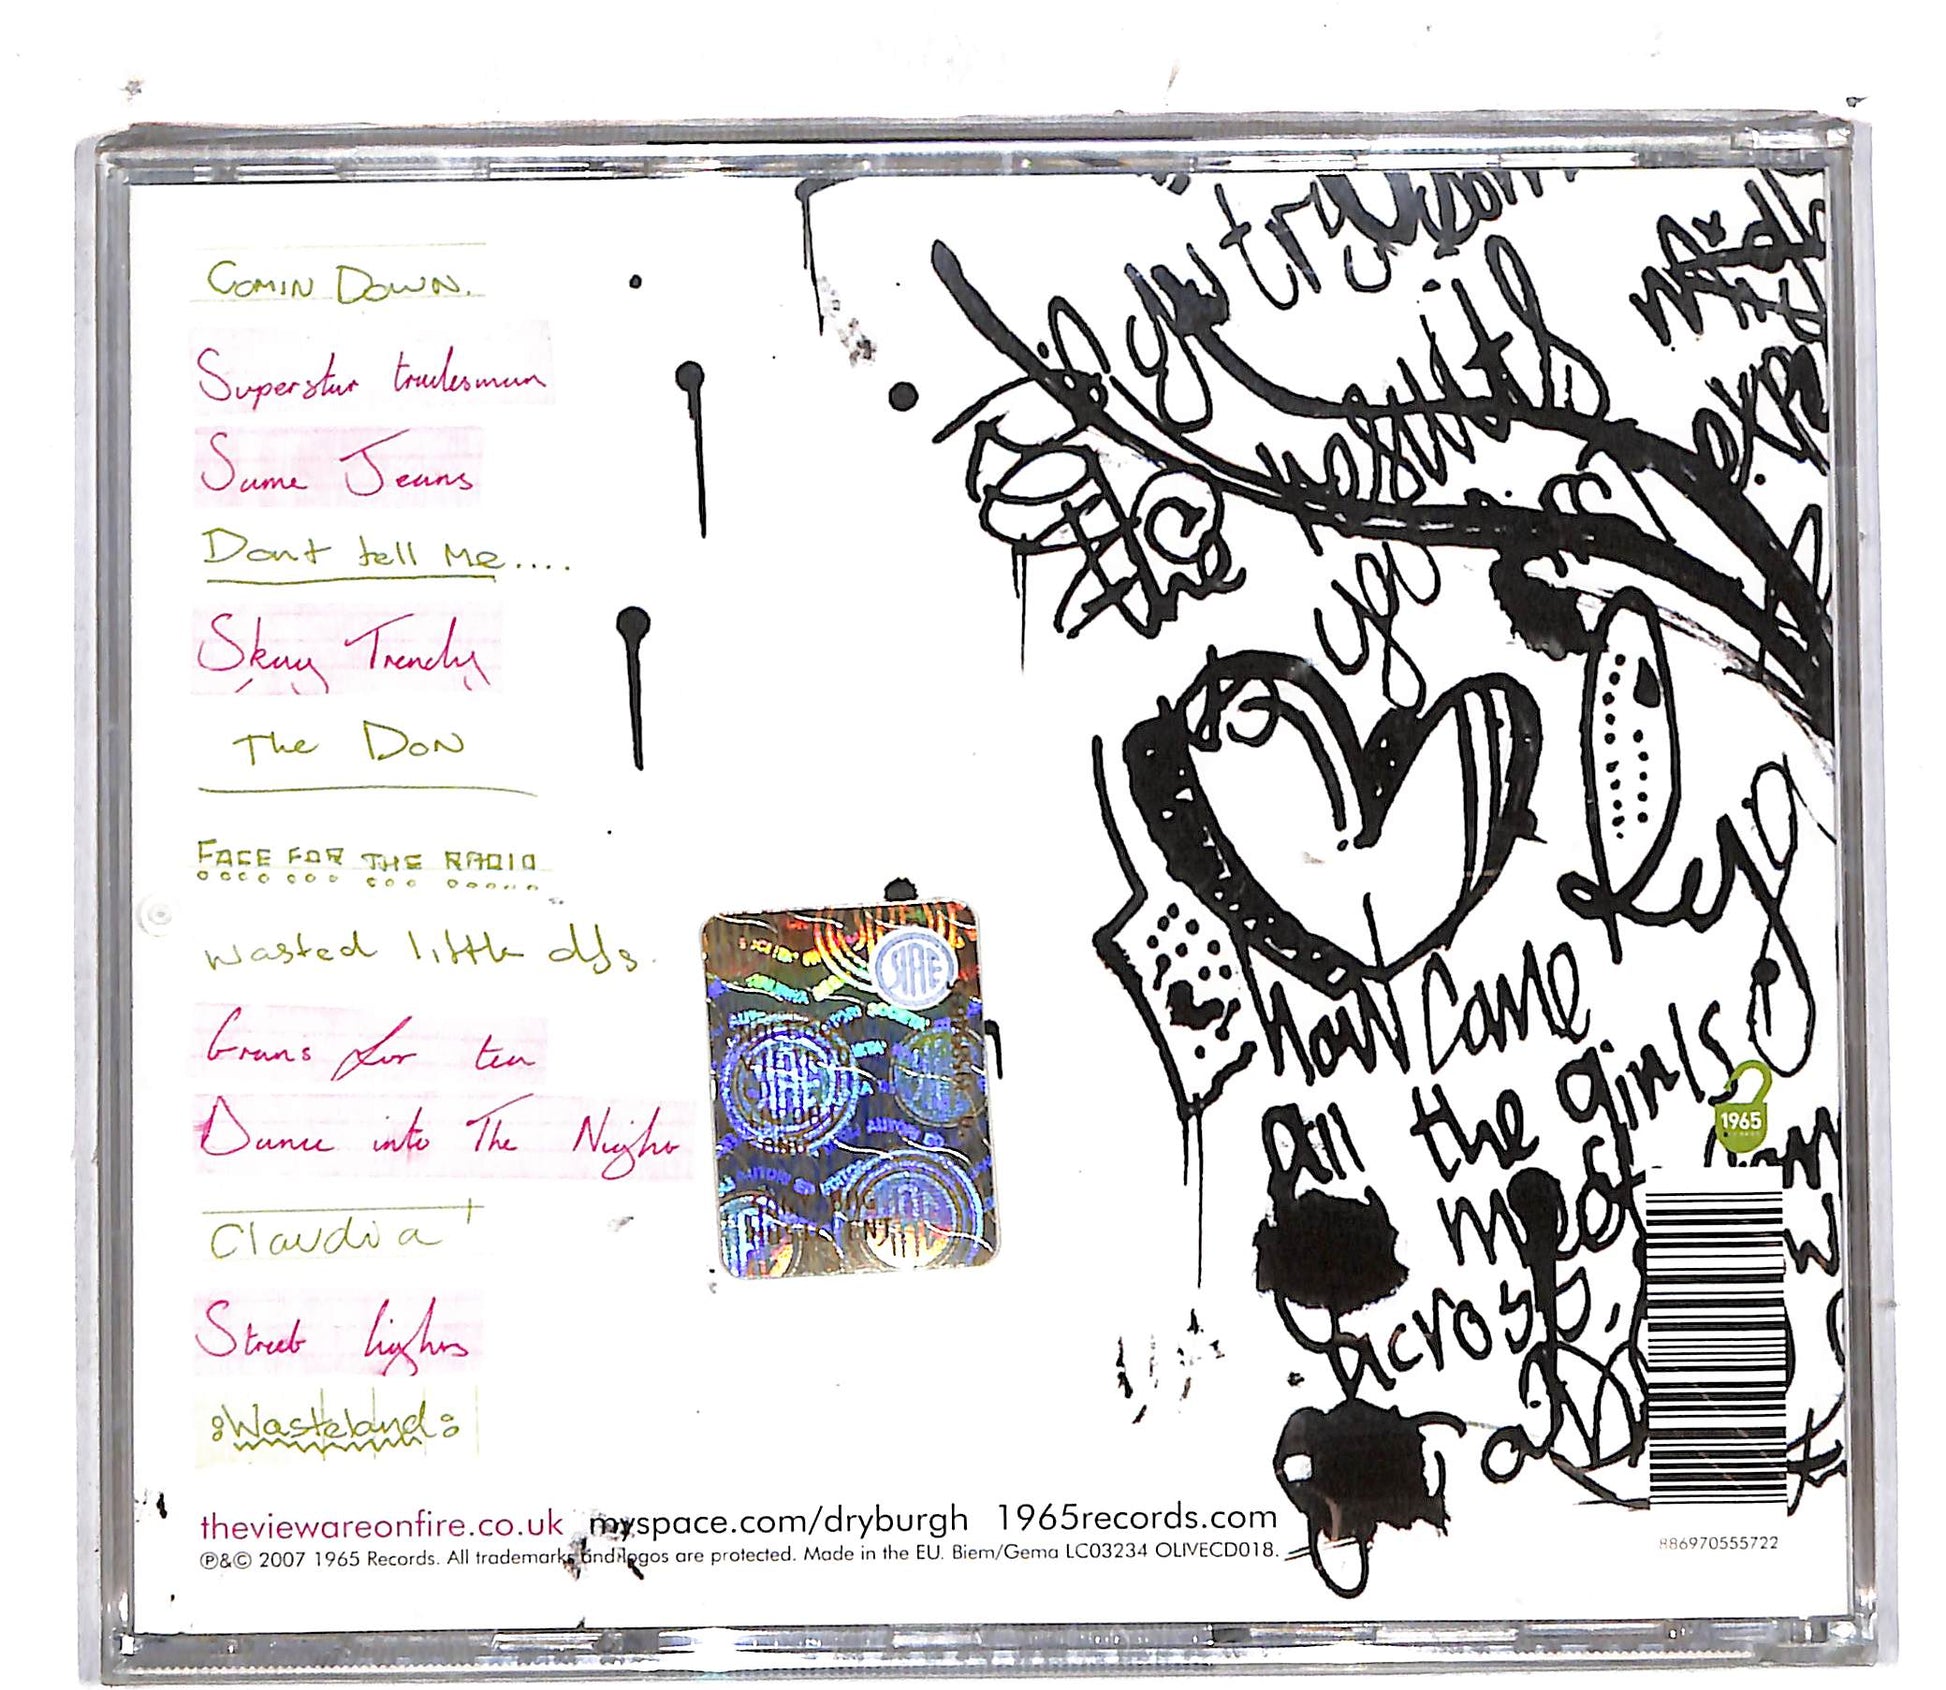 Comin Down.
Superstar tradesman
Same Jeans
Dont tell me....
Skag Trendy
The Don
FACE FOR THE RADIO
wasted little DJs.
Grans for tea
Dance into The Night
Claudia
Street lights
Wasteland
theviewareonfire.co.uk myspace.com/dryburgh 1965records.com
℗&© 2007 1965 Records. All trademarks and logos are protected. Made in the EU. Biem/Gema LC03234 OLIVECD018.
if you try
results
the
yo
how come
All the girls
meet
across
a
1965
886970555722
SIAE